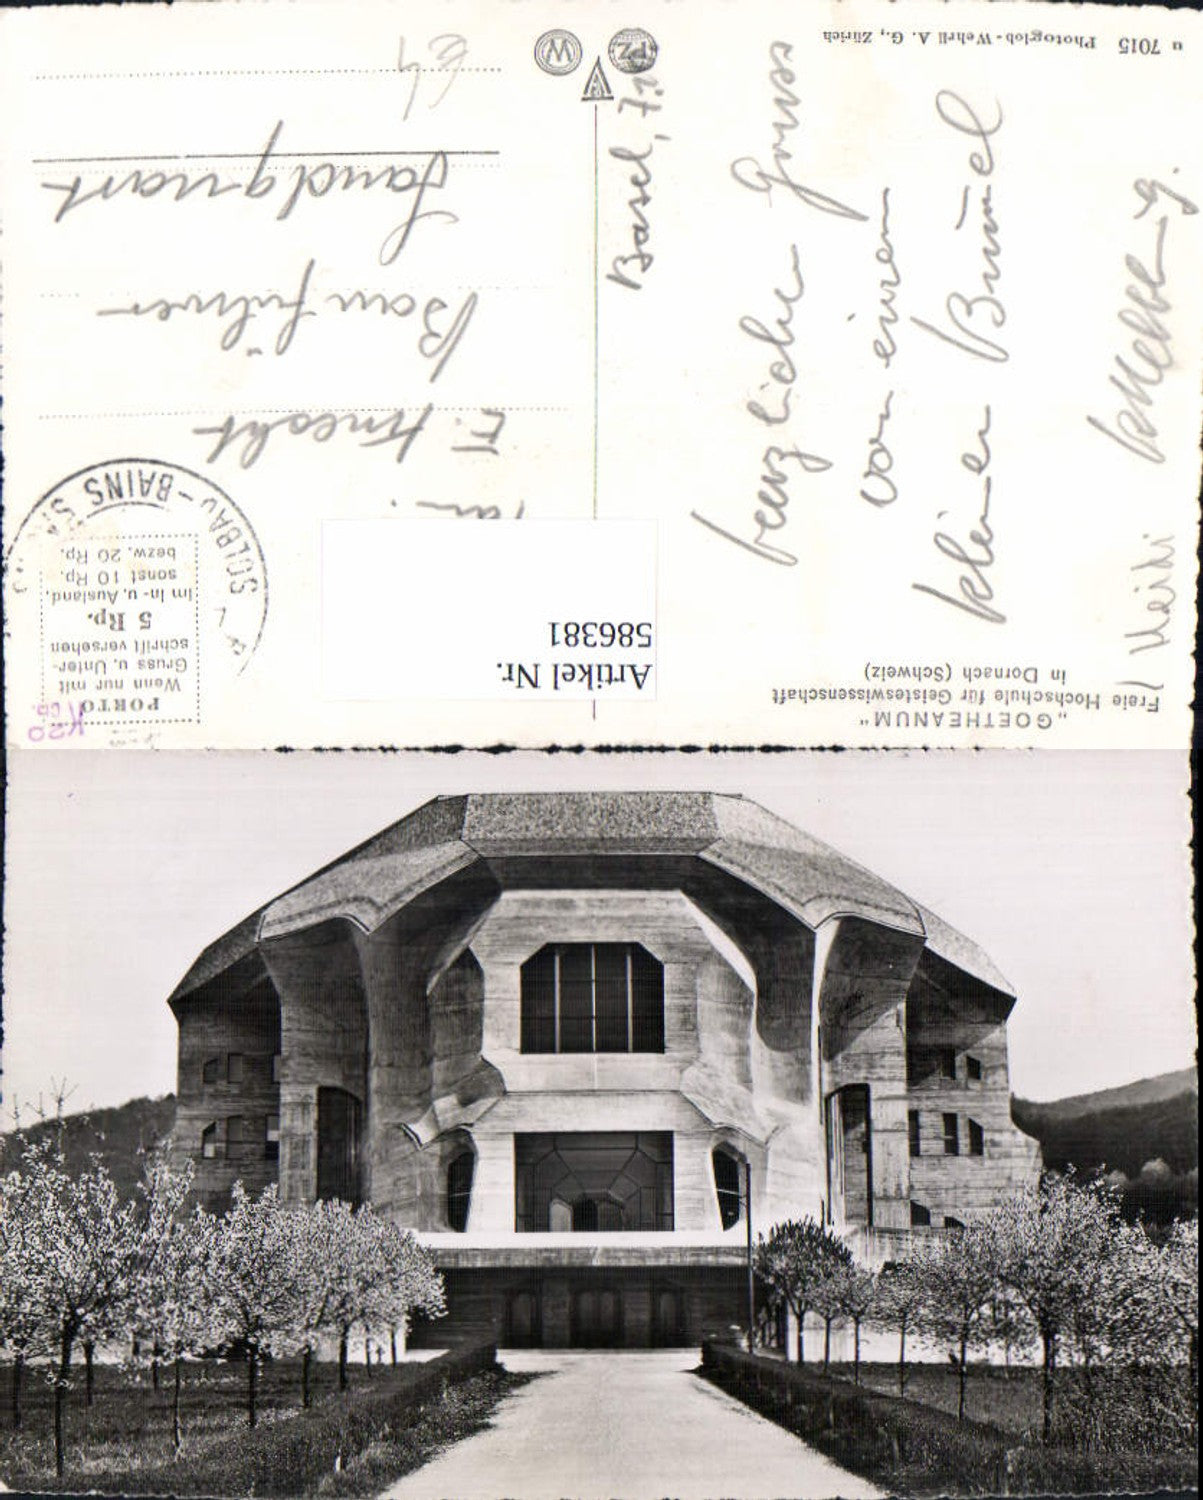 „GOETHEANUM“
Freie Hochschule für Geisteswissenschaft
in Dornach (Schweiz)
PORTO
Wenn nur mit
Gruss u. Unter-
schrift versehen
5 Rp.
im In- u. Ausland,
sonst 10 Rp.
bezw. 20 Rp.
SOLBAD - BAINS
Artikel Nr.
586381
Basel, 7.
herzliche Gruss
von einem
kleinen Bummel
Heidi
Bauführer
Landquart
u 7015 Photoglob-Wehrli A. G., Zürich
W
PZ
K20